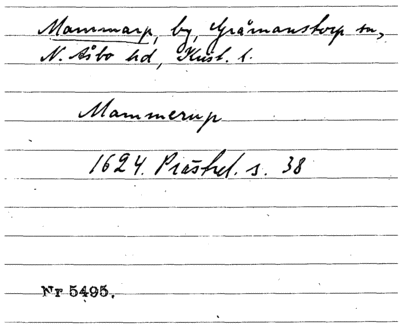 Mammarp, by, Gråmanstorp sn,
N. Åsbo hd, Krist. l.
Mammerup
1624. Prästrel. s. 38
Nr 5495.